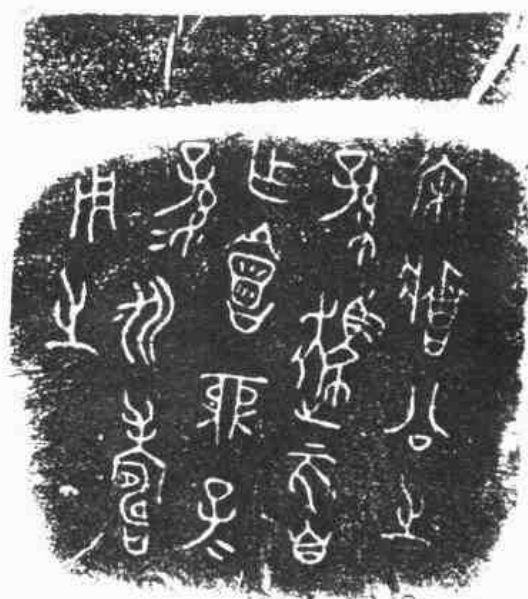 宋莊公之
孫趞亥自
乍會鼎子=
孫=永壽
用之